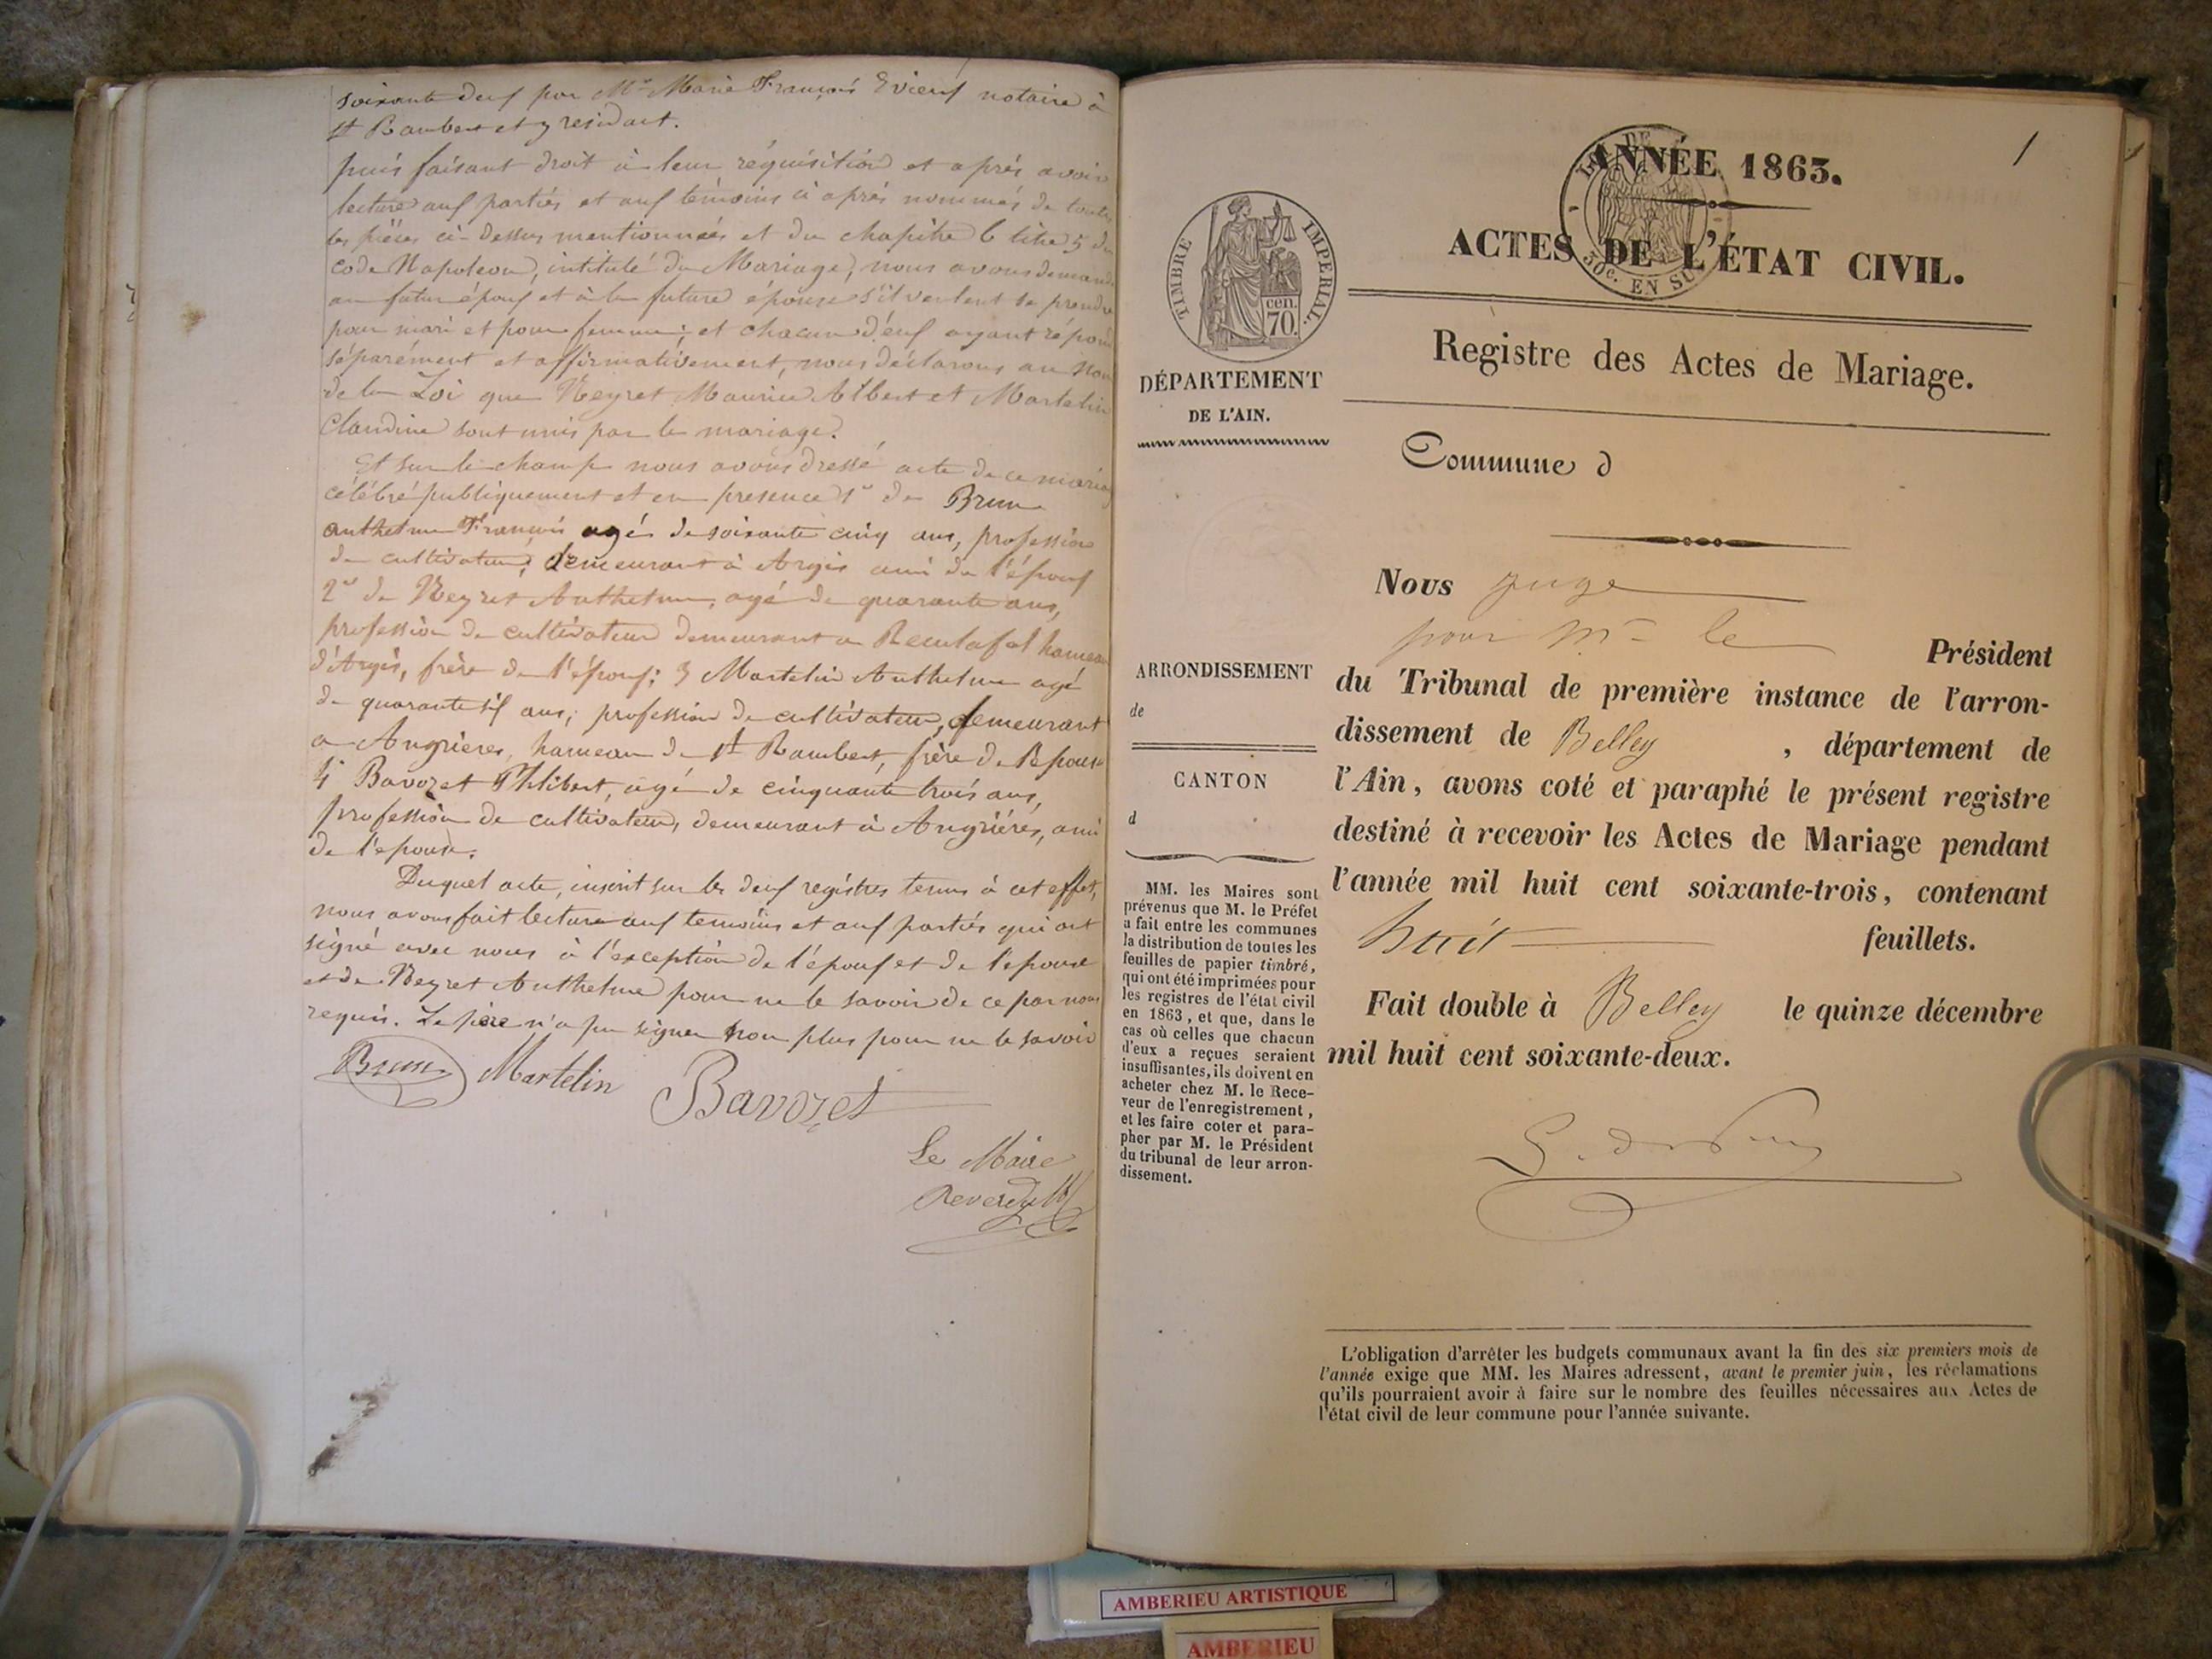 soixante deux par Me Marie François Evieux notaire à
St Rambert et y residant.
puis faisant droit à leur réquisition et après avoir
lecture aux parties et aux témoins ci après nommés de toutes
les pièces ci-dessus mentionnées et du chapitre 6 titre 5 du
code Napoleon, intitulé du Mariage, nous avons demandé
au futur époux et à la future épouse s'il veulent se prendre
pour mari et pour femme; et chacun d'eux ayant répondu
séparément et affirmativement, nous déclarons au nom
de la Loi que Neyret Maurice Albert et Martelin
Claudine sont unis par le mariage.
Et sur le champ nous avons dressé acte de ce mariage
célébré publiquement et en presence 1° de Brun
anthelme François agé de soixante cinq ans, profession
de cultivateur, demeurant à Argis ami de l'époux
2° de Neyret Anthelme, agé de quarante ans,
profession de cultivateur demeurant a Reculafol hameau
d'Argis, frère de l'époux; 3 Martelin Anthelme agé
de quarante six ans, profession de cultivateur, demeurant
a Angrieres, hameau de St Rambert, frère de l'épouse
4° Bavozet Philibert, agé de cinquante trois ans,
profession de cultivateur, demeurant à Angrières, ami
de l'epouse.
Duquel acte, inscrit sur les deux registres tenus à cet effet,
nous avons fait lecture aux temoins et aux parties qui ont
signé avec nous à l'exception de l'époux et de l'épouse
et de Neyret Anthelme pour ne le savoir de ce par nous
requis. Le père n'a pu signer non plus pour ne le savoir
Brun Martelin Bavozet
Le Maire
Reverdy
1
ANNÉE 1863.
ACTES DE L'ÉTAT CIVIL.
30c. EN SUS
TIMBRE IMPERIAL.
cen.
70.
DÉPARTEMENT
DE L'AIN.
Registre des Actes de Mariage.
Commune d
Nous juge
pour Mr le Président
du Tribunal de première instance de l'arron-
dissement de Belley , département de
l'Ain, avons coté et paraphé le présent registre
destiné à recevoir les Actes de Mariage pendant
l'année mil huit cent soixante-trois, contenant
huit feuillets.
Fait double à Belley le quinze décembre
mil huit cent soixante-deux.
ARRONDISSEMENT
de
CANTON
d
MM. les Maires sont
prévenus que M. le Préfet
a fait entre les communes
la distribution de toutes les
feuilles de papier timbré,
qui ont été imprimées pour
les registres de l'état civil
en 1863, et que, dans le
cas où celles que chacun
d'eux a reçues seraient
insuffisantes, ils doivent en
acheter chez M. le Rece-
veur de l'enregistrement,
et les faire coter et para-
pher par M. le Président
du tribunal de leur arron-
dissement.
L'obligation d'arrêter les budgets communaux avant la fin des six premiers mois de
l'année exige que MM. les Maires adressent, avant le premier juin, les réclamations
qu'ils pourraient avoir à faire sur le nombre des feuilles nécessaires aux Actes de
l'état civil de leur commune pour l'année suivante.
AMBERIEU ARTISTIQUE
AMBERIEU